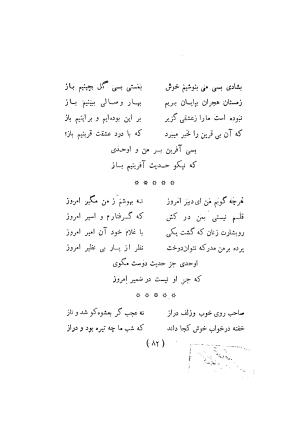 بشادی بسی می بنوشیم خوش    بمستی بسی گل بچینیم باز
زمستان هجران بپایان بریم    بهار وصالی ببینیم باز
نبوده است ما را ز عشقی گزیر    بر این بوده‌ایم و براینیم باز
که آن بی قرین را خبر میبرد    که با درد عشقت قرینیم باز؟
بسی آفرین بر من و اوحدی
که نیکو حدیث آفرینیم باز
* * * * *
هرچه گویم من ای دبیر امروز    نه بهوشم ز من مگیر امروز
قلم نیستی بمن در کش    که گرفتارم و اسیر امروز
رویشاوت زنان که گشت یکی    با غلام خود آن امیر امروز
پرده برمن مدر که نتوان دوخت    نظر از یار بی نظیر امروز
اوحدی جز حدیث دوست مگوی
که جز او نیست در ضمیر امروز
* * * * *
صاحب روی خوب وزلف دراز    نه عجب گر بعشوه کوشد و ناز
خفته درخواب خوش کجا داند    که شب ما چه تیره بود و دراز
(۸۲)